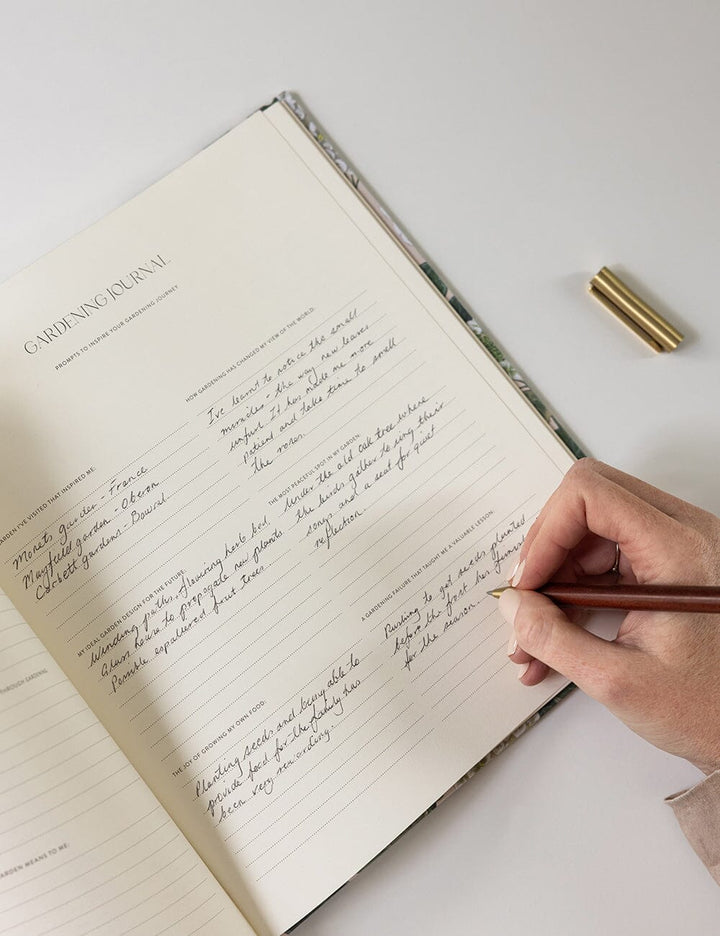 GARDENING JOURNAL
PROMPTS TO INSPIRE YOUR GARDENING JOURNEY
GARDEN I'VE VISITED THAT INSPIRED ME:
Monets Garden - France
Mayfield garden - Oberon
Corbett gardens - Bowral
HOW GARDENING HAS CHANGED MY VIEW OF THE WORLD:
I've learnt to notice the small
miracles - the way new leaves
unfurl. It has made me more
Patient and take time to smell
the roses.
MY IDEAL GARDEN DESIGN FOR THE FUTURE:
Winding paths, flowering herb bed.
Glass house to propagate new plants
Possible espaliered fruit trees.
THE MOST PEACEFUL SPOT IN MY GARDEN:
Under the old oak tree where
the birds gather to sing their
songs and a seat for quiet
reflection.
THE JOY OF GROWING MY OWN FOOD:
Planting seeds and being able to
provide food for the family has
been very rewarding.
A GARDENING FAILURE THAT TAUGHT ME A VALUABLE LESSON:
Rushing to get seeds planted
before the frost has finished
for the season.
THROUGH GARDENING
GARDEN MEANS TO ME: